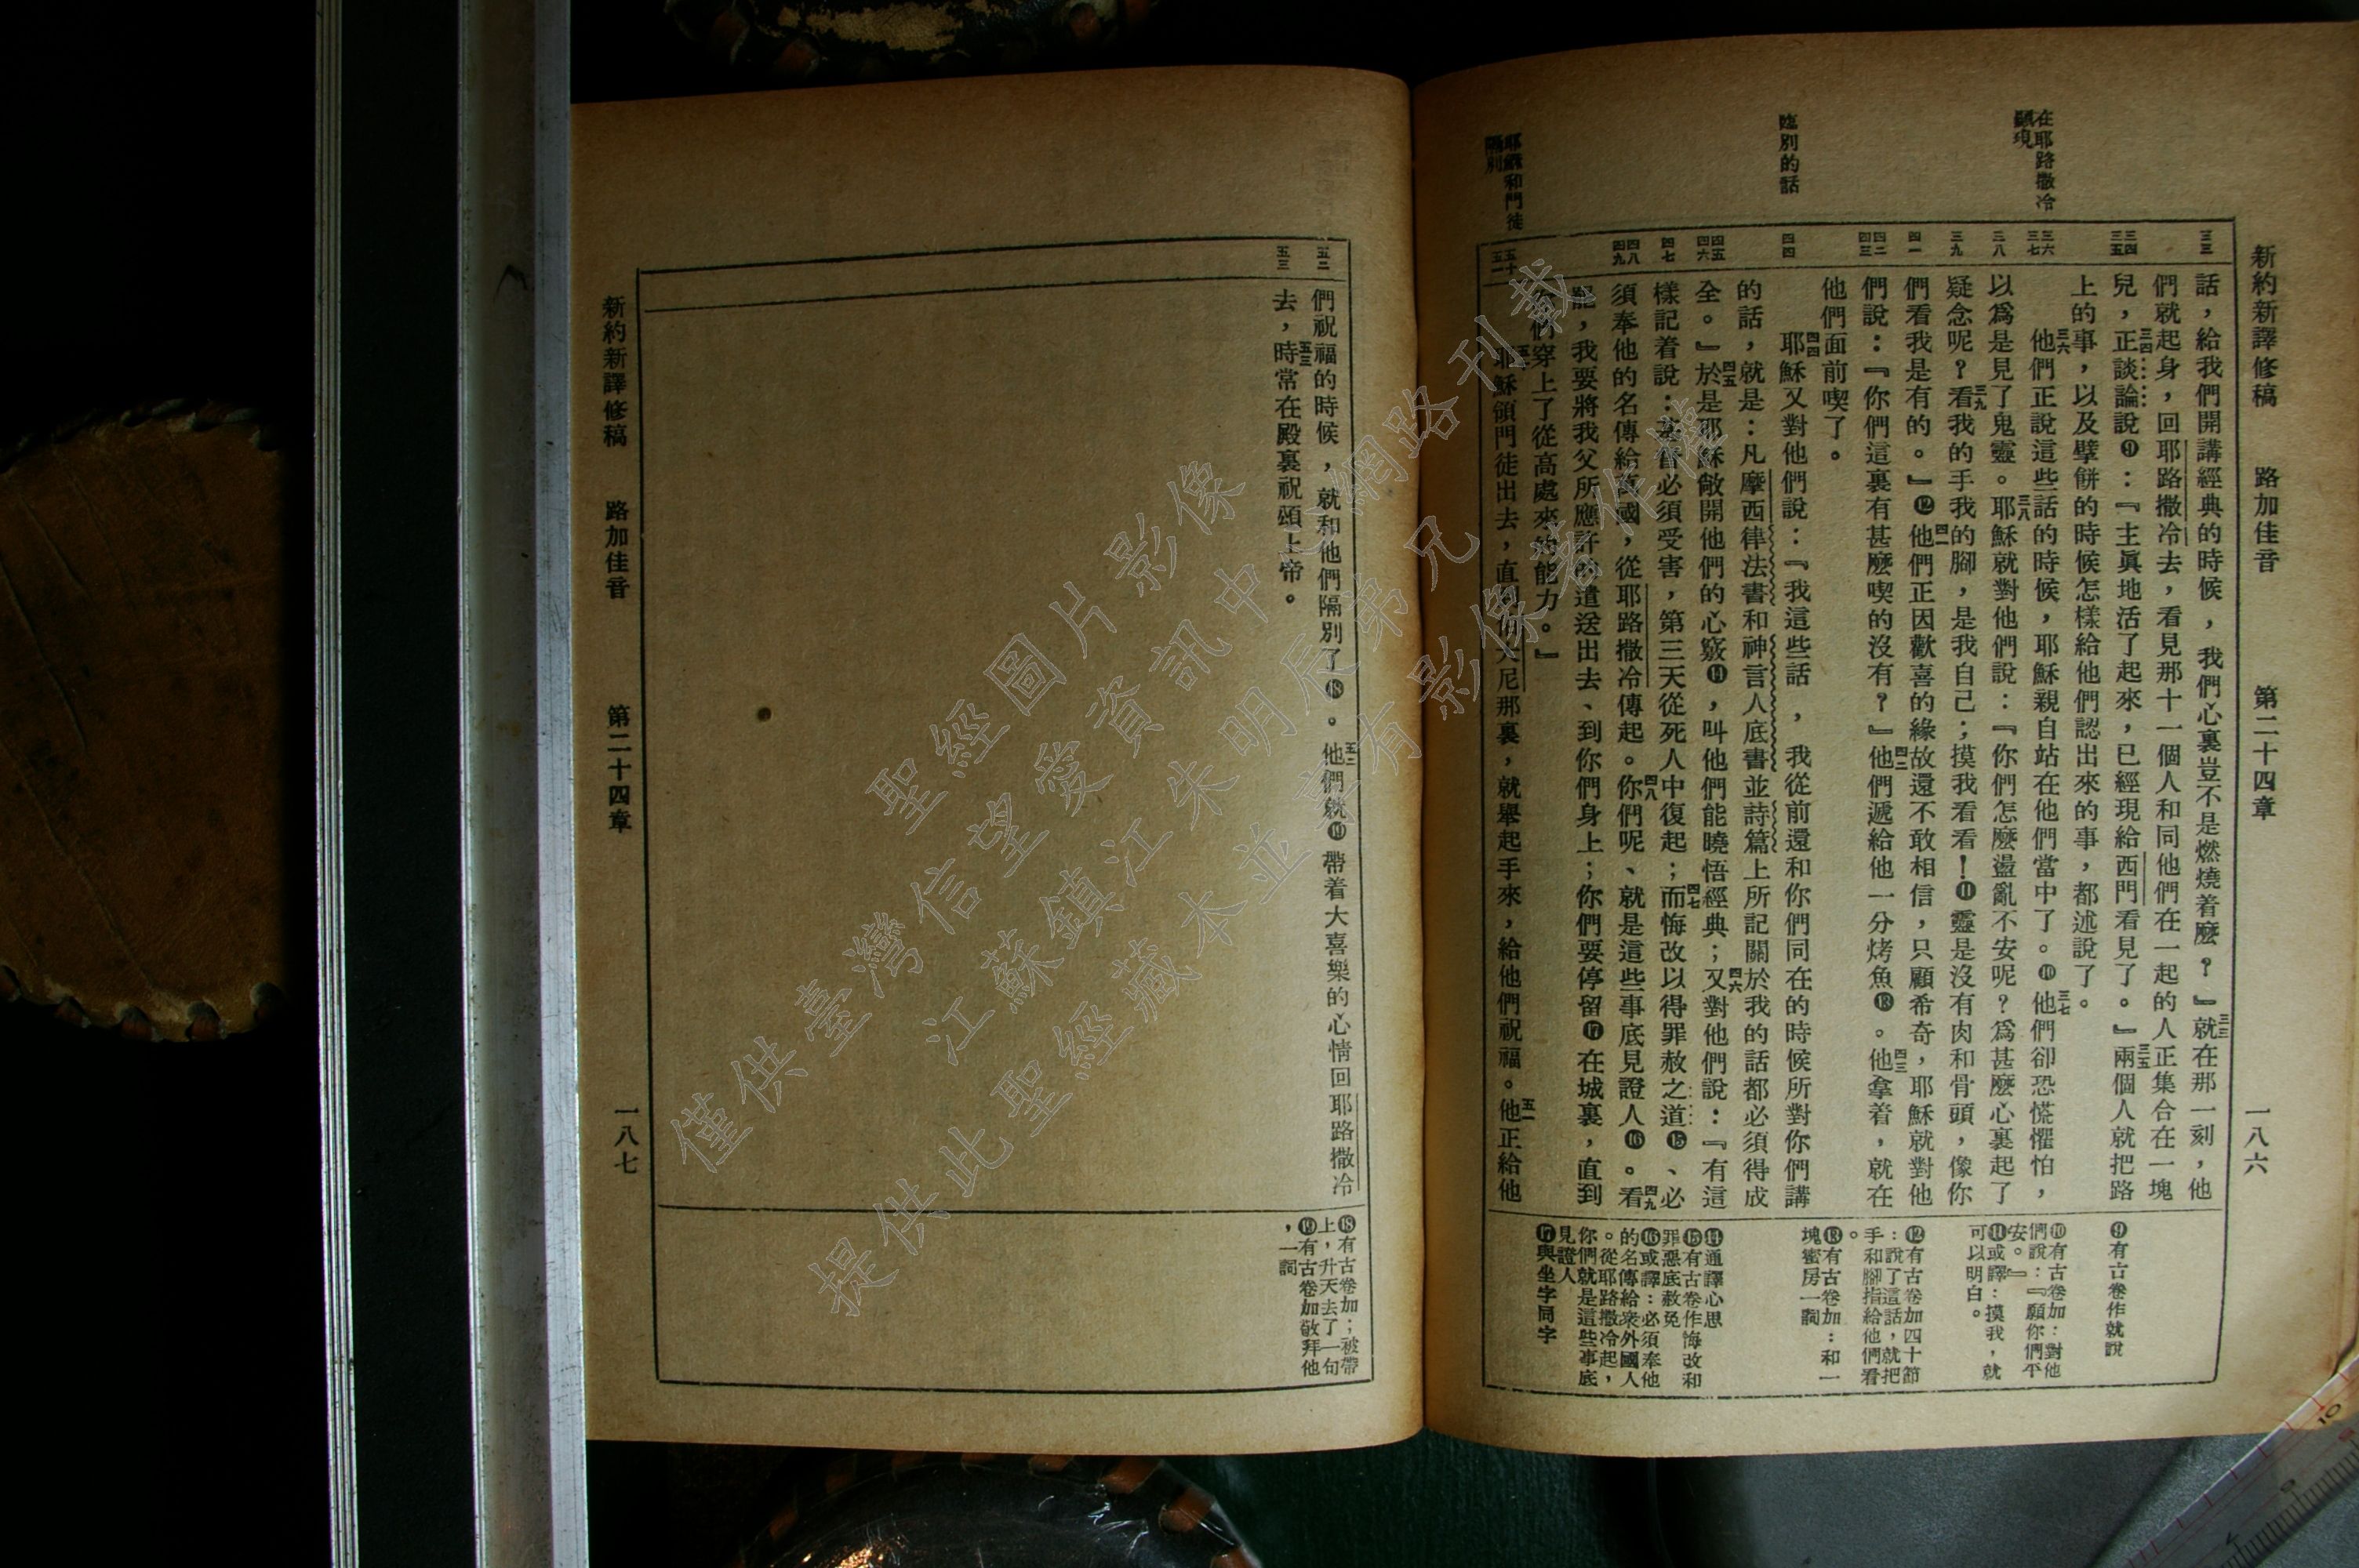 新約新譯修稿　路加佳音　第二十四章　一八六
在耶路撒冷
顯現
臨別的話
耶穌和門徒
隔別
三三
三四
三五
三六
三七
三八
三九
四一
四二
四三
四四
四五
四六
四七
四八
四九
五十
五一
話，給我們開講經典的時候，我們心裏豈不是燃燒着麼？』三三就在那一刻，他
們就起身，回耶路撒冷去，看見那十一個人和同他們在一起的人正集合在一塊
兒，三四正談論說❾：『主眞地活了起來，已經現給西門看見了。』三五兩個人就把路
上的事，以及擘餅的時候怎樣給他們認出來的事，都述說了。
三六他們正說這些話的時候，耶穌親自站在他們當中了。❿三七他們卻恐慌懼怕，
以爲是見了鬼靈。三八耶穌就對他們說：『你們怎麼盪亂不安呢？爲甚麼心裏起了
疑念呢？三九看我的手我的腳，是我自己；摸我看看！⓫靈是沒有肉和骨頭，像你
們看我是有的。』⓬四一他們正因歡喜的緣故還不敢相信，只顧希奇，耶穌就對他
們說：『你們這裏有甚麼喫的沒有？』四二他們遞給他一分烤魚⓭。四三他拿着，就在
他們面前喫了。
四四耶穌又對他們說：『我這些話，我從前還和你們同在的時候所對你們講
的話，就是：凡摩西律法書和神言人底書並詩篇上所記關於我的話都必須得成
全。』四五於是耶穌敞開他們的心竅⓮，叫他們能曉悟經典；四六又對他們說：『有這
樣記着說：基督必須受害，第三天從死人中復起；四七而悔改以得罪赦之道⓯、必
須奉他的名傳給萬國，從耶路撒冷傳起。四八你們呢、就是這些事底見證人⓰。四九看
罷，我要將我父所應許的遣送出去、到你們身上；你們要停留⓱在城裏，直到
你們穿上了從高處來的能力。』
五十耶穌領門徒出去，直到伯大尼那裏，就舉起手來，給他們祝福。五一他正給他
❾有古卷作就說
❿有古卷加：對他
們說：『願你們平
安。』
⓫或譯：摸我，就
可以明白。
⓬有古卷加四十節
：說了這話，就把
手和腳指給他們看
。
⓭有古卷加：和一
塊蜜房一詞
⓮通譯心思
⓯有古卷作悔改和
罪惡底赦免
⓰或譯：必須奉他
的名傳給衆外國人
。從耶路撒冷起，
你們就是這些事底
見證人
⓱與坐字同字
五二
五三
們祝福的時候，就和他們隔別了⓲。五二他們就⓳帶着大喜樂的心情回耶路撒冷
去，五三時常在殿裏祝頌上帝。
⓲有古卷加；被帶
上，升天去了一句
⓳有古卷加敬拜他
，一詞
新約新譯修稿　路加佳音　第二十四章　一八七
聖經圖片影像
僅供臺灣信望愛資訊中心網路刊載
江蘇鎮江朱明辰弟兄
提供此聖經藏本並享有影像著作權
10
9